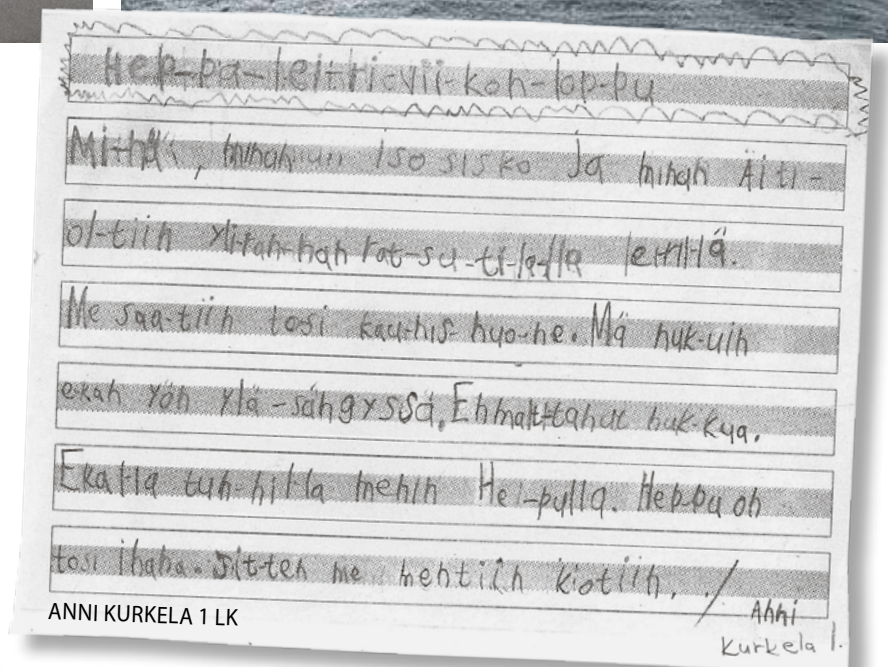 Hep-pa-lei-ri-vii-kon-lop-pu
Mi-nä, minun iso sisko ja minun Äiti-
ol-tiin Yli-kan-nan rat-su-ti-la-lla leirillä.
Me saa-tiin tosi kau-nis huo-ne. Mä nuk-uin
ekan yön ylä-sängyssä. En malt-tanut nuk-kua.
Ekal-la tun-nil-la menin Hei-pulla. Hep-pu on
tosi ihana. sit-ten me mentiin kiotiin. /Anni
Kurkela 1.
ANNI KURKELA 1 LK